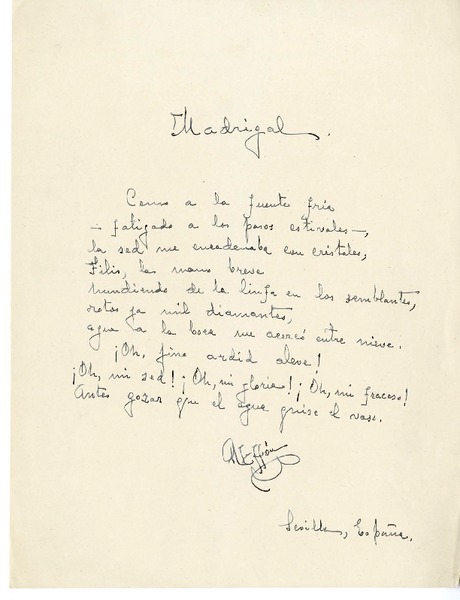 Madrigal.
Como a la fuente fría
— fatigado a los pasos estivales —,
la sed me encadenaba con cristales,
Filis, la mano breve
hundiendo de la linfa en los semblantes,
rotos ya mil diamantes,
agua a la boca me acercó entre nieve.
¡Oh, fino ardid aleve!
¡Oh, mi sed! ¡Oh, mi gloria! ¡Oh, mi fracaso!
Antes gozar que el agua quise el vaso.
Sevilla, España.